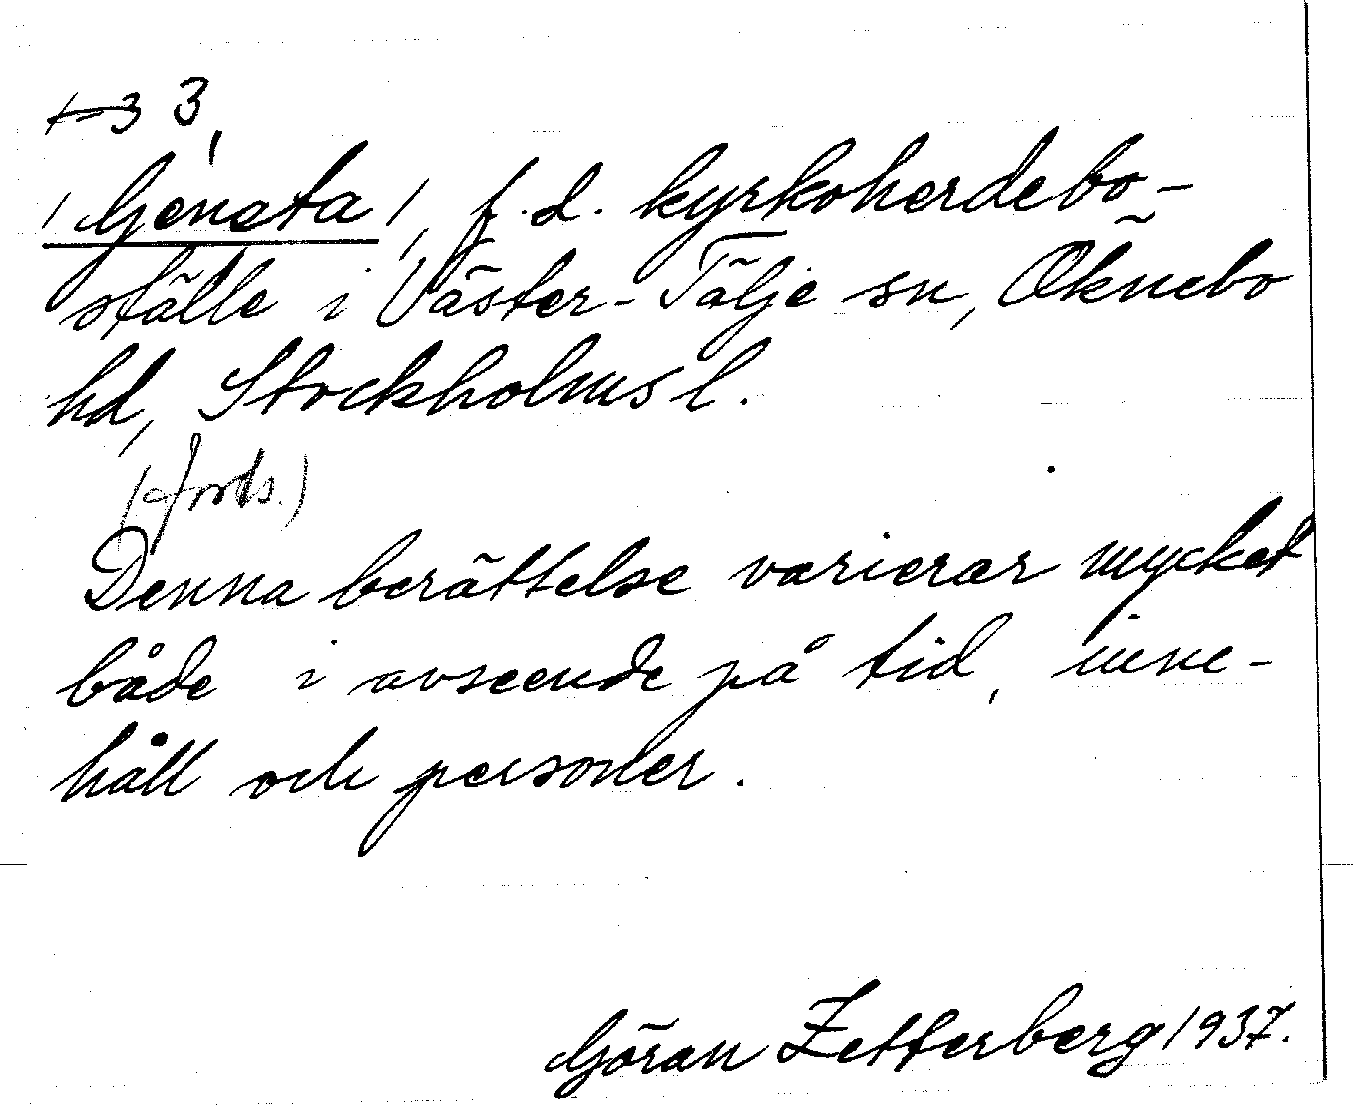 3,
/Geneta/, f.d. kyrkoherdebo-
ställe i Väster-Tälje sn, Öknebo
hd, Stockholms l.
(forts.)
Denna berättelse varierar mycket
både i avseende på tid, inne-
håll och personer.
Göran Zetterberg 1937.